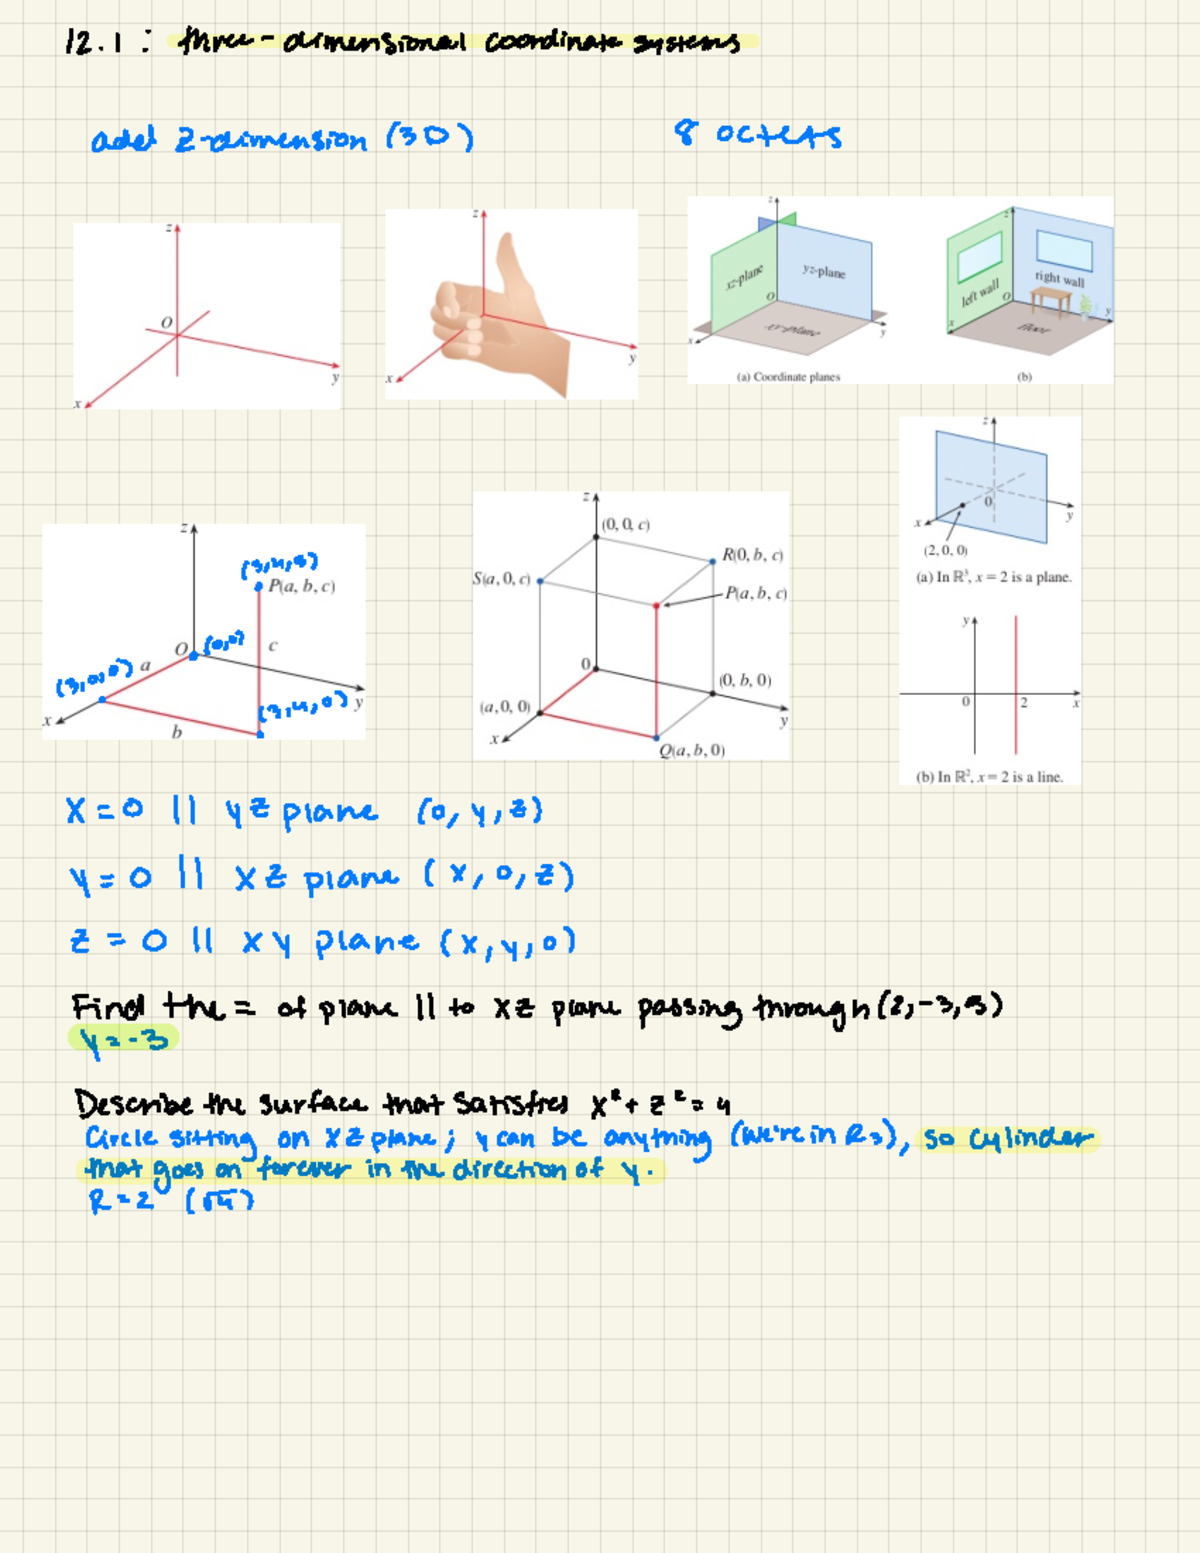 12.1: three-dimensional coordinate systems
add z-dimension (3D)
8 octets
z
O
x
y
z
x
y
z
xz-plane
yz-plane
O
xy-plane
x
y
(a) Coordinate planes
z
left wall
right wall
O
floor
x
y
(b)
z
0
x
y
(2, 0, 0)
(a) In ℝ³, x = 2 is a plane.
y
0
2
x
(b) In ℝ², x = 2 is a line.
z
P(a, b, c)
O
(0,0)
a
c
(3,0,0)
(3,4,0)
x
y
b
z
(0, 0, c)
R(0, b, c)
S(a, 0, c)
P(a, b, c)
0
(0, b, 0)
(a, 0, 0)
x
y
Q(a, b, 0)
x=0 || yz plane (0, y, z)
y=0 || xz plane (x, 0, z)
z=0 || xy plane (x, y, 0)
Find the = of plane || to xz plane passing through (2,-3,5)
y=-3
Describe the surface that satisfies x²+z²=4
Circle sitting on xz plane; y can be anything (we're in R3), so cylinder
that goes on forever in the direction of y.
R=2 (√4)